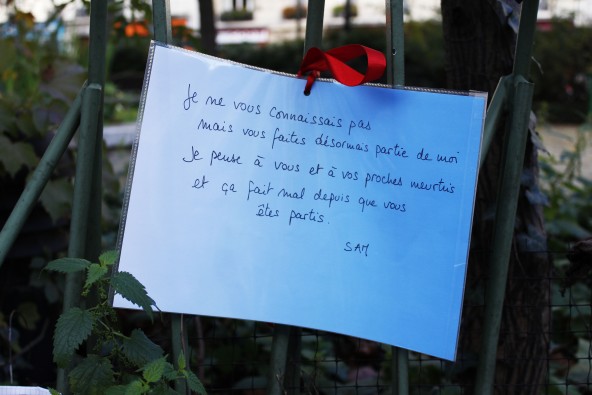 Je ne vous connaissais pas
mais vous faites désormais partie de moi
Je pense à vous et à vos proches meurtris
et ça fait mal depuis que vous
êtes partis.
SAM